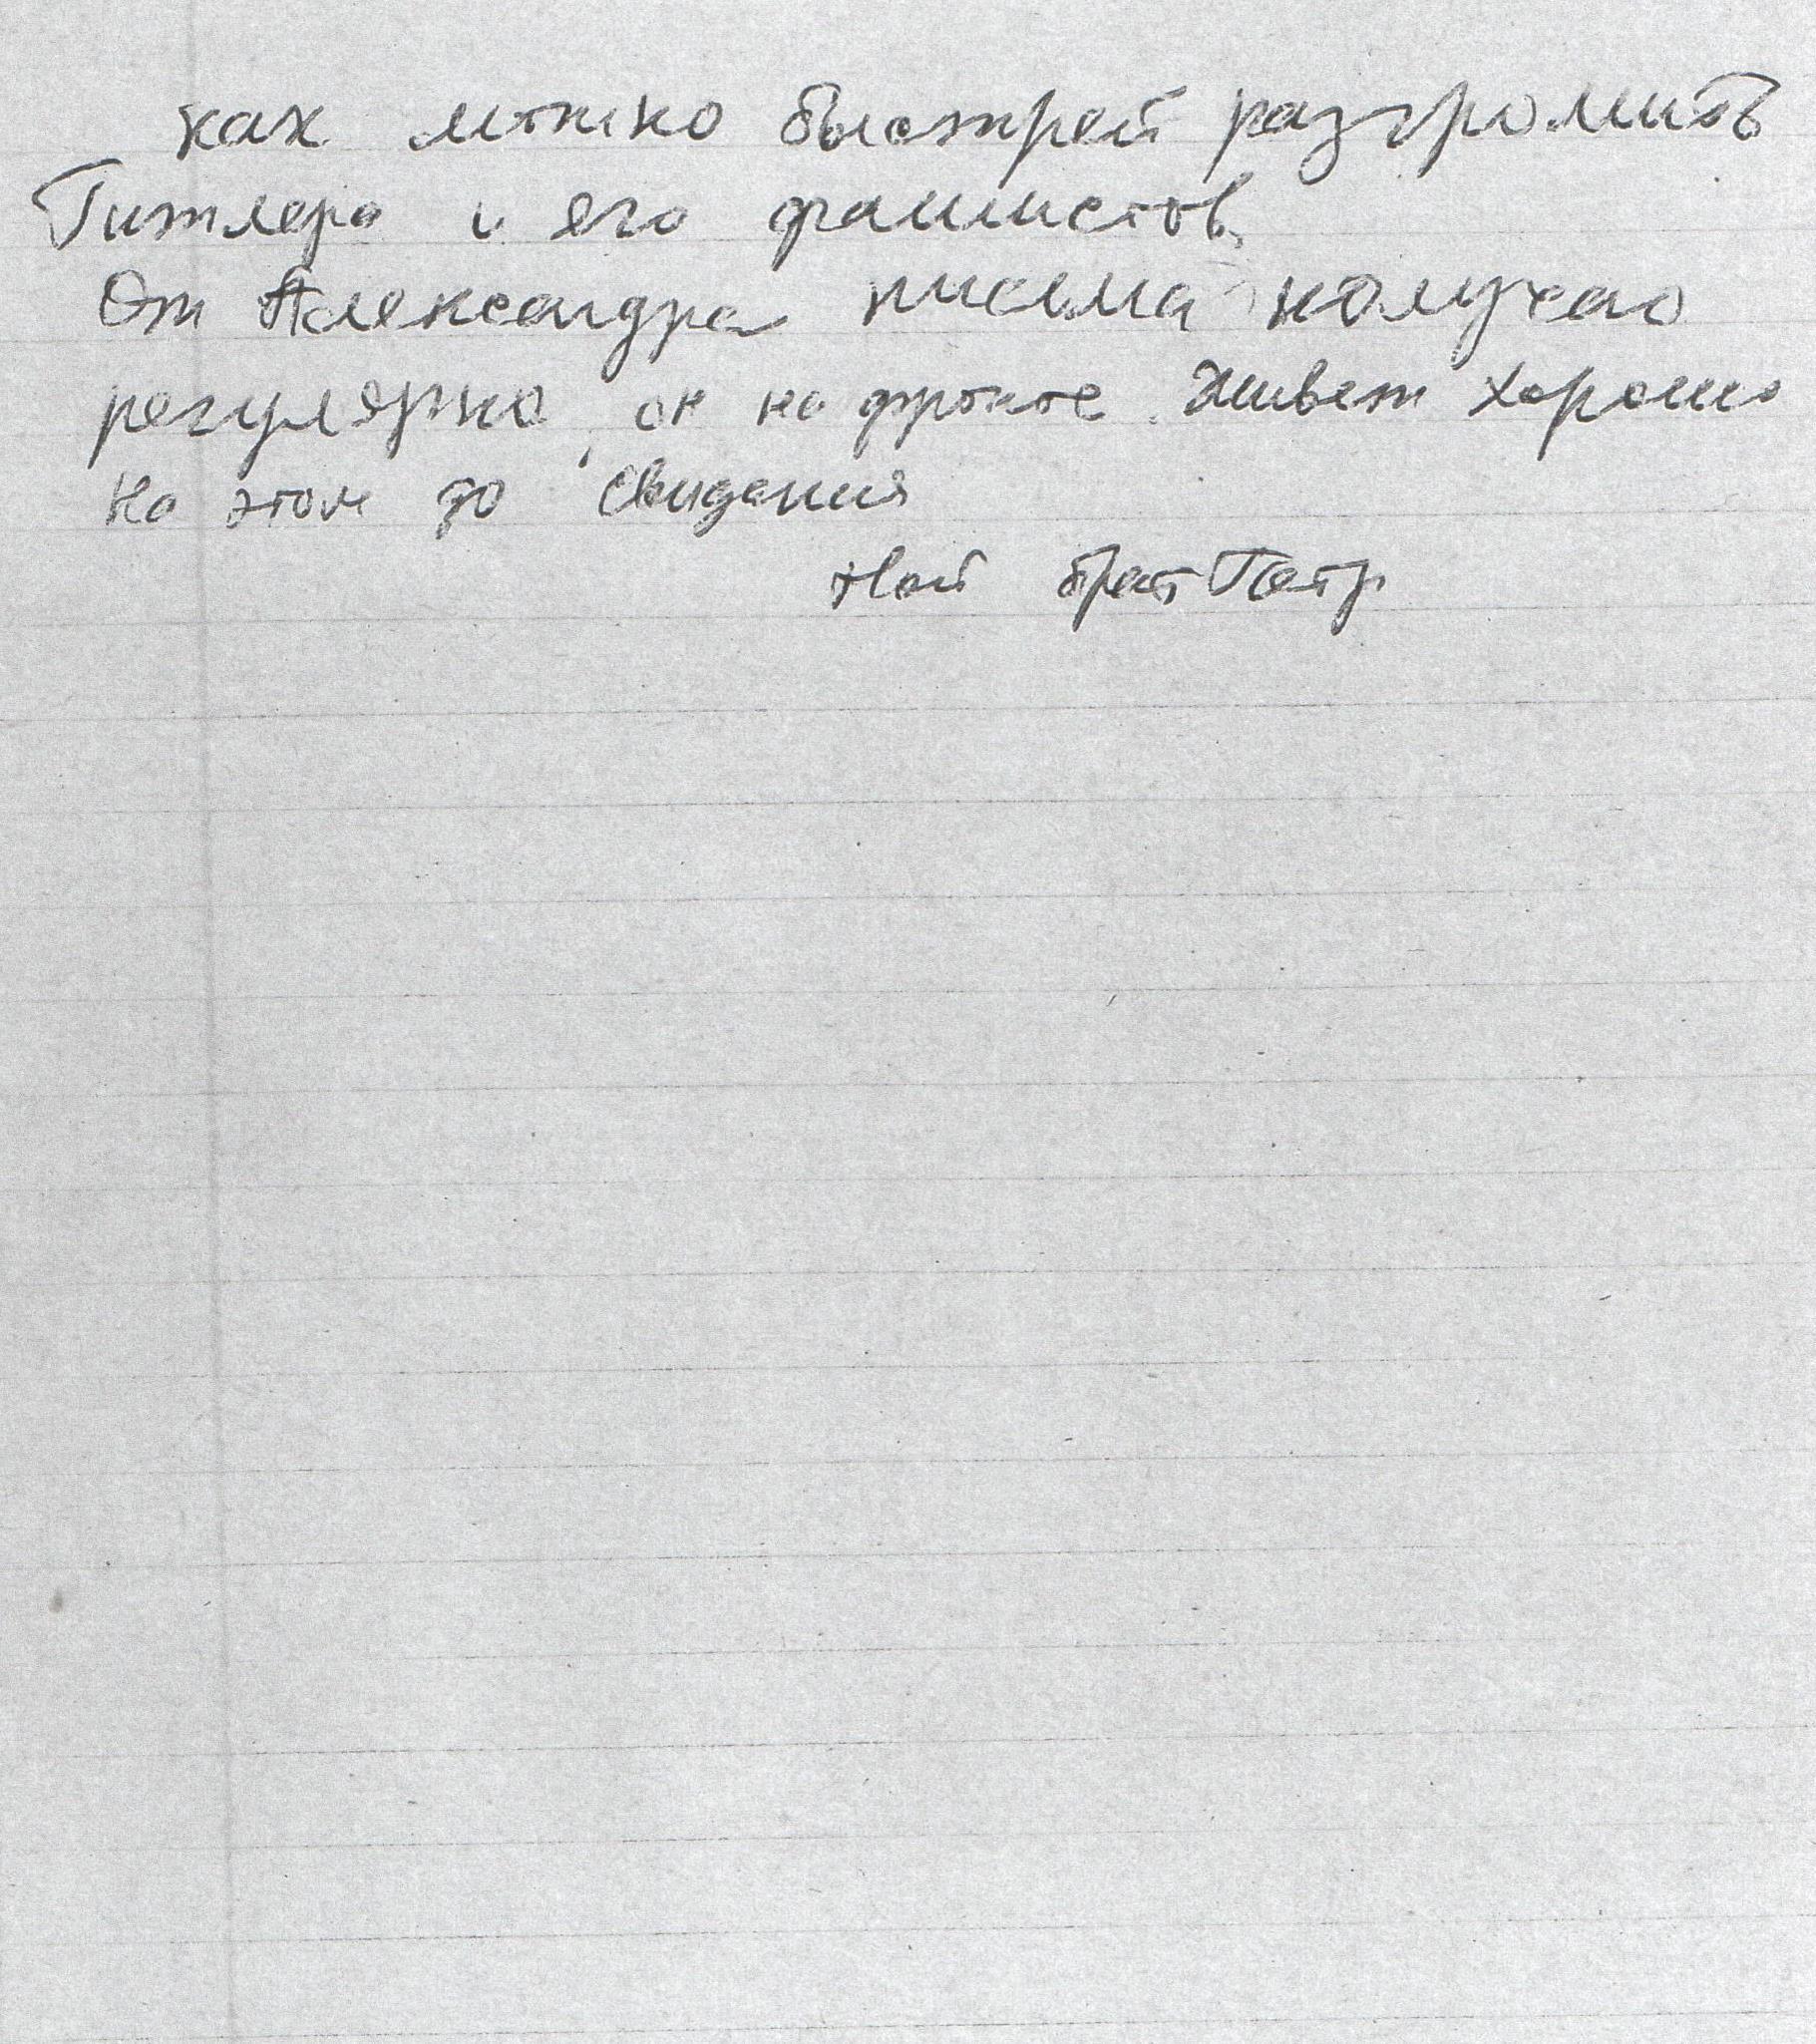 как можно быстрей разгромить
Гитлера и его фашистов.
От Александра письма получаю
регулярно, он на фронте. Живет хорошо
На этом до свидания
твой брат Петр.